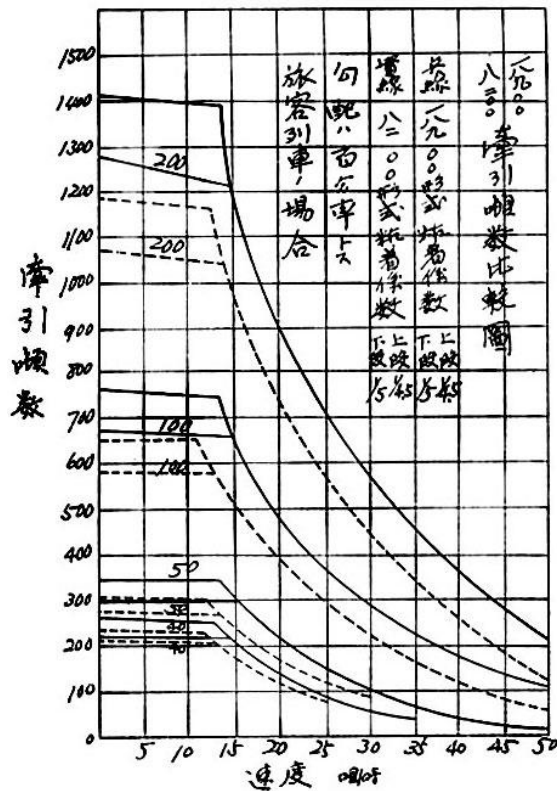 一八九〇〇
八二〇〇 牽引噸数比較圖
点線 一八九〇〇形式粘着係数 上段 1/4.5 下段 1/5
實線 八二〇〇形式粘着係数 上段 1/4.5 下段 1/5
勾配ハ百分率トス
旅客列車ノ場合
牽引噸数
1500
1400
1300
1200
1100
1000
900
800
700
600
500
400
300
200
100
0
200
200
100
100
50
50
40
40
5 10 15 20 25 30 35 40 45 50
速度 哩/時